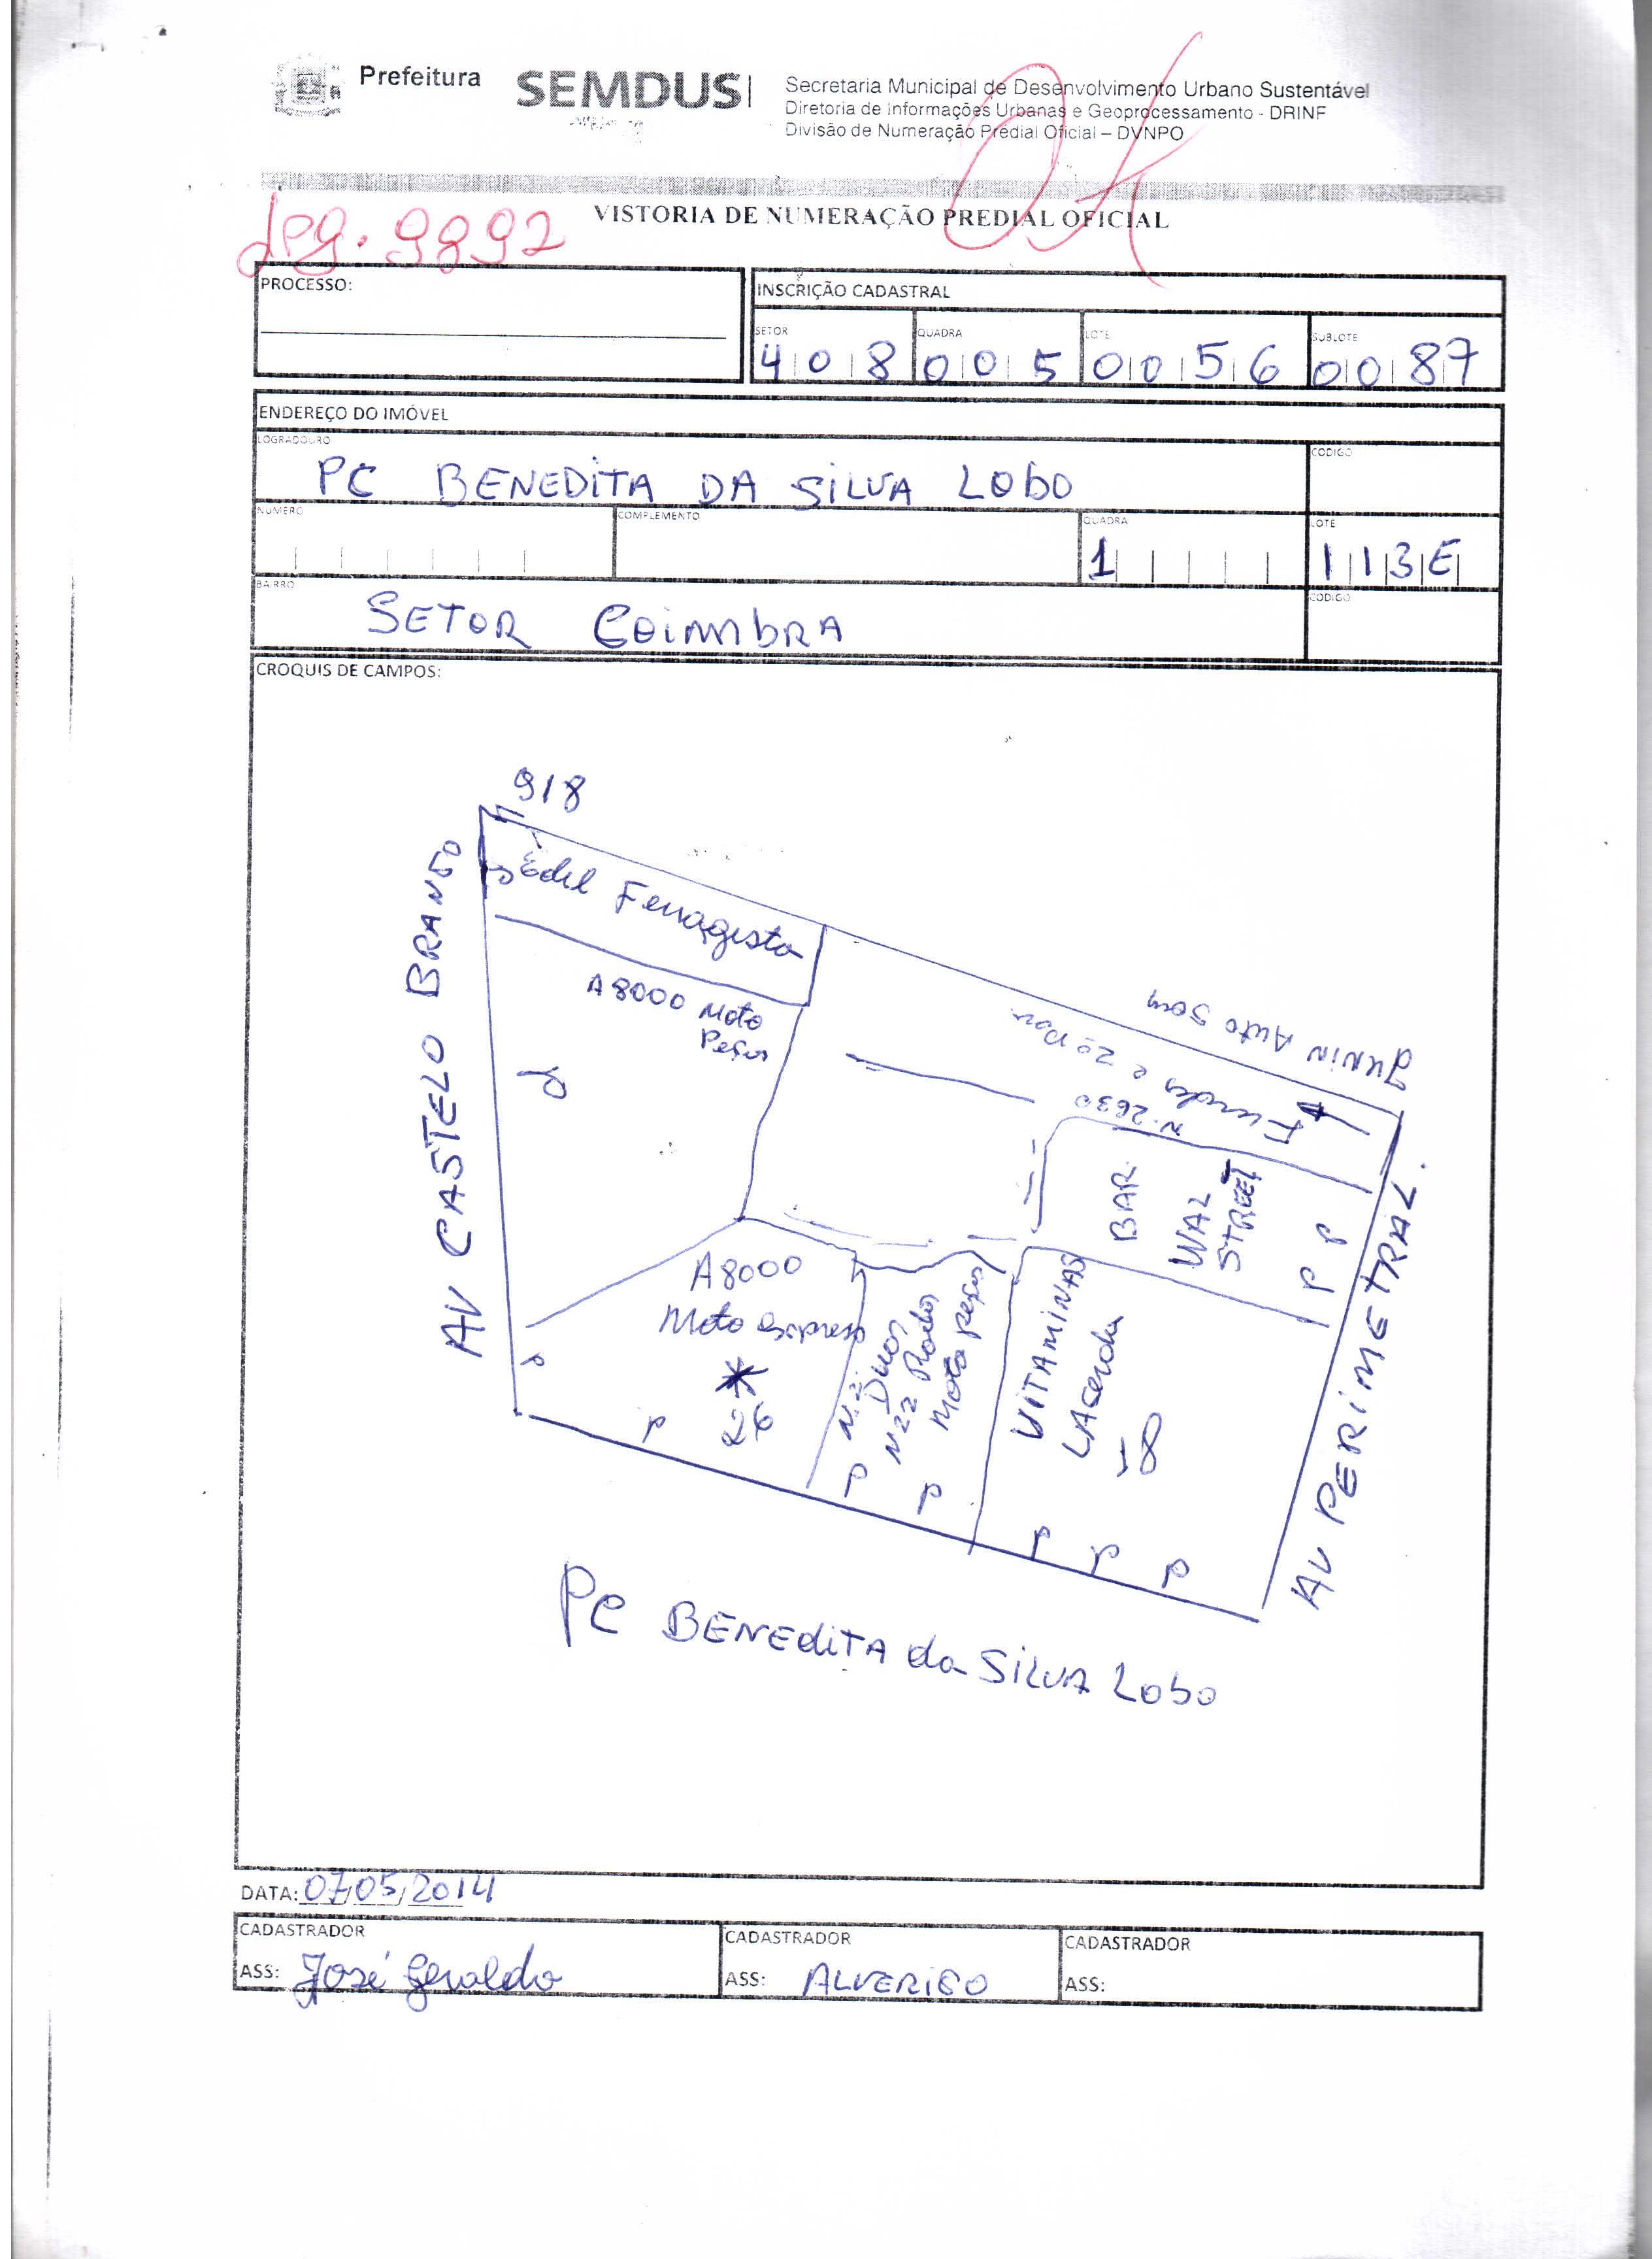 Prefeitura
SEMDUS
Secretaria Municipal de Desenvolvimento Urbano Sustentável
Diretoria de Informações Urbanas e Geoprocessamento - DRINF
Divisão de Numeração Predial Oficial – DVNPO
OK
VISTORIA DE NUMERAÇÃO PREDIAL OFICIAL
9892
PROCESSO:
INSCRIÇÃO CADASTRAL
SETOR QUADRA LOTE SUBLOTE
408 005 0056 0087
ENDEREÇO DO IMÓVEL
LOGRADOURO CODIGO
PC BENEDITA DA SILVA LOBO
NUMERO COMPLEMENTO QUADRA LOTE
1 113E
BAIRRO CODIGO
SETOR COIMBRA
CROQUIS DE CAMPOS:
918
Ferragista
A8000 Moto
Peças
AV CASTELO BRANCO
JUNIN Auto Som
Fundos e 2º Pav.
N: 2630
BAR
WAL
STREET
P P
AV PERIMETRAL
A8000
Moto
*
26
P
P
N22 Rodas
Moto Peças
P P
VITAMINAS
LAcerda
18
P P P
PC BENEdiTA da SILVA Lobo
DATA: 07/05/2014
CADASTRADOR
ASS: José Geraldo
CADASTRADOR
ASS: ALVERICO
CADASTRADOR
ASS: